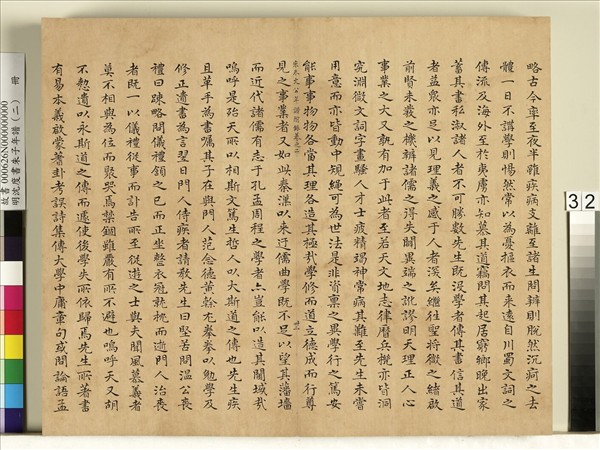 略古今率至夜半雖疾病支離至諸生問辨則脫然沉痾之去
體一日不講學則惕然常以為憂摳衣而來遠自川蜀文詞之
傳流及海外至於夷虜亦知慕其道竊問其起居窮鄉晚出家
蓄其書私淑諸人者不可勝數先生既沒學者傳其書信其道
者益衆亦足以見理義之感于人者深矣繼往聖將微之緒啟
前賢未發之機辨諸儒之得失闢異端之訛謬明天理正人心
事業之大又孰有加于此者至若天文地志律曆兵機亦皆洞
究淵微文詞字畫騷人才士疲精竭神常病其難至先生未嘗
用意而亦皆動中規繩可為世法是非資禀之異學行之篤安
能事事物物各當其理各造其極哉學修而道立德成而行尊
見之事業者又如此秦漢以來迂儒曲學既不足以望其藩墻
而近代諸儒有志于孔孟周程之學者亦豈能以造其閫域哉
嗚呼是殆天所以相斯文篤生哲人以大斯道之傳也先生疾
且革手為書囑其子在與門人范念德黃榦尤拳拳以勉學及
修正遺書為言翌日門人侍疾者請教先生曰堅苦問溫公喪
禮曰疎略問儀禮頷之已而正坐整衣冠就枕而逝門人治喪
者既一以儀禮從事而訃告所至從遊之士與夫聞風慕義者
莫不相與為位而聚哭焉禁錮雖嚴有所不避也嗚呼天又胡
不憖遺以永斯道之傳而遽使後學失所依歸焉先生所著書
有易本義啟蒙蓍卦考誤詩集傳大學中庸章句或問論語孟
故書 000626N000000000
明沈度書朱子年譜(二)
32